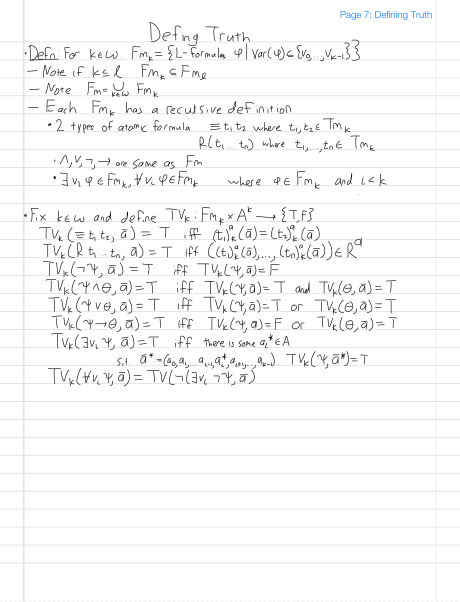 Page 7: Defining Truth
Defing Truth
• Defn: For k∈ω. Fm_k = {L-formulas φ | Var(φ) ⊆ {v_0,..., v_{k-1}}}
– Note if k ≤ l Fm_k ⊆ Fm_l
– Note Fm = ∪_{k∈ω} Fm_k
– Each Fm_k has a recursive definition
• 2 types of atomic formula ≡t_1t_2 where t_1,t_2 ∈ Tm_k
R(t_1...t_n) where t_1,...,t_n ∈ Tm_k
• ∧,∨,¬,→ are same as Fm
• ∃v_i φ ∈ Fm_k, ∀v_i φ ∈ Fm_k where φ ∈ Fm_k and i<k
• Fix k∈ω and define TV_k : Fm_k × A^k → {T,F}
TV_k(≡t_1t_2, ā) = T iff (t_1)_k^a(ā) = (t_2)_k^a(ā)
TV_k(R t_1...t_n, ā) = T iff ((t_1)_k^a(ā),...,(t_n)_k^a(ā)) ∈ R^a
TV_k(¬ψ, ā) = T iff TV_k(ψ,ā) = F
TV_k(ψ∧θ, ā) = T iff TV_k(ψ,ā) = T and TV_k(θ,ā) = T
TV_k(ψ∨θ, ā) = T iff TV_k(ψ,ā) = T or TV_k(θ,ā) = T
TV_k(ψ→θ, ā) = T iff TV_k(ψ,ā) = F or TV_k(θ,ā) = T
TV_k(∃v_i ψ, ā) = T iff there is some a_i* ∈ A
s.t. ā* = (a_0,a_1,...a_{i-1},a_i*,a_{i+1},...,a_{k-1}). TV_k(ψ,ā*) = T
TV_k(∀v_i ψ, ā) = TV(¬(∃v_i ¬ψ, ā)